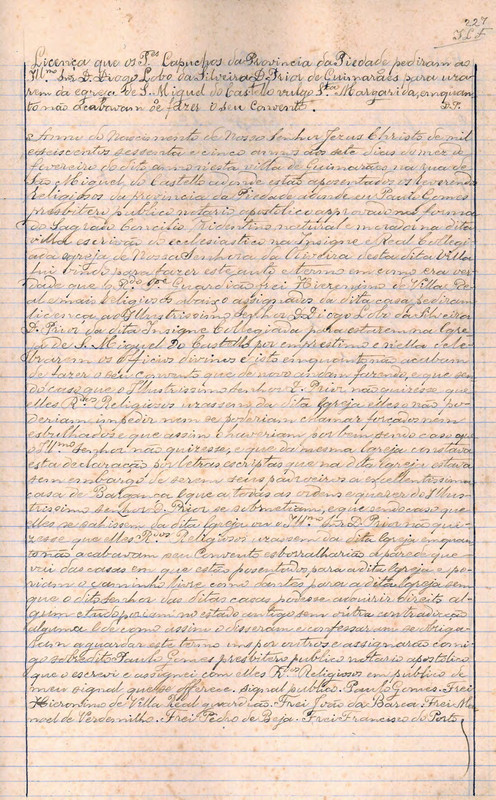 227
Licença que os P.es Capuchos da Provincia da Piedade pediram ao
Ill.mo Snr. D. Diogo Lobo da Silveira D. Prior de Guimarães para uza-
rem da egreja de S. Miguel do Castello vulgo S.ta Margarida, enquan-
to não acabavam de fazer o seu Convento.
Anno do Nascimento de Nosso Senhor Jesus Christo de mil
e seiscentos sessenta e cinco annos aos sete dias do mez de
fevereiro do dito anno nesta villa de Guimarães na rua de
São Miguel do Castello aonde estão aposentados os reverendos
Religiosos da provincia da Piedade aonde eu Paulo Gomes
presbitero publico notario apostolico approvado na forma
do Sagrado Concilio Tridentino natural e morador na dita
villa escrivão do ecclesiastico na Insigne e Real Collegi-
ada egreja de Nossa Senhora da Oliveira desta dita villa
fui vindo para fazer este auto e termo em como era ver-
dade que o R.do P.e Guardião frei Hieronimo de Villa Re-
al e mais religiosos abaixo assignados da dita casa pediram
licença ao Illustrissimo Senhor D. Diogo Lobo da Silveira
D. Prior da dita Insigne Collegiada para estarem na Igre-
ja de S. Miguel do Castello por emprestimo e nella cele-
brarem os officios divinos e isto emquanto não acabam
de fazer o seu convento que de novo andam fazendo, e que sen-
do caso que o Illustrissimo Senhor D. Prior não quizesse que
elles R.dos Religiosos uzassem da dita Igreja elles o não po-
deriam impedir nem se poderiam chamar forçados nem
esbulhados e que assim o haveriam por bem sendo caso que
o Ill.mo Senhor não quizesse, e que da mesma Igreja constava
esta declaração por letras escriptas que na dita Igreja estava
sem embargo de serem seus padroeiros a excellentissima
casa de Bargança o que a todas as ordens e querer do Illus-
trissimo Senhor D. Prior se submetiam, e que sendo caso que
elles se sahissem da dita Igreja ou o Ill.mo Snr. D. Prior não qui-
zesse que elles R.dos Religiosos uzassem da dita Igreja enquan-
to não acabavam seu Convento esborralharia a parede que
vai das casas em que estão aposentados para a dita Igreja e po-
riam o caminho livre como dantes para a dita Igreja sem
que o dito Senhor das ditas casas podesse adquirir direito al-
gum e tudo poriam no estado antigo sem outra contradição
alguma e de como assim o disseram e confessaram se obriga-
ram a guardar este termo uns por outros e assignarão comi-
go sobredito Paulo Gomes presbitero publico notario apostolico
que o escrevi e assignei com elles R.dos Religiosos em publico de
meu signal que se offerece. signal publico. Paulo Gomes. Frei
Hieronimo de Villa Real guardião. Frei João da Barca. Frei Ma-
noel de Verdemilho. Frei Pedro de Beja. Frei Francisco do Porto.